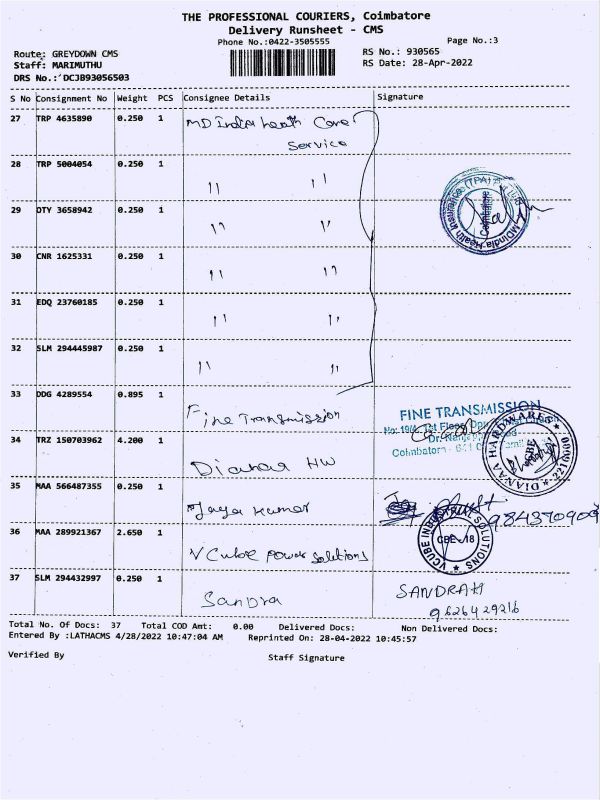 THE PROFESSIONAL COURIERS, Coimbatore
Delivery Runsheet - CMS
Phone No.:0422-3505555
Page No.:3
Route: GREYDOWN CMS
RS No.: 930565
Staff: MARIMUTHU
RS Date: 28-Apr-2022
DRS No.:'DCJB93056503
S No Consignment No Weight PCS Consignee Details Signature
27 TRP 4635890 0.250 1 MD India health Care
Service
28 TRP 5004054 0.250 1 " "
29 DTY 3658942 0.250 1 " "
30 CNR 1625331 0.250 1 " "
31 EDQ 23760185 0.250 1 " "
32 SLM 294445987 0.250 1 " "
MDIndia Health Insurance (TPA)
Coimbatore
33 DDG 4289554 0.895 1 Fine Transmission
FINE TRANSMISSION
1st Floor
Dr.
Coimbatore
34 TRZ 150703962 4.200 1 Dianaa HW
DIANAA HARDWARES
35 MAA 566487355 0.250 1 Jaya Kumar
36 MAA 289921367 2.650 1 V Cube Power Solutions
VCUBE SOLUTIONS
CBE-18
37 SLM 294432997 0.250 1 Sandra
SANDRAH
9626429216
Total No. Of Docs: 37 Total COD Amt: 0.00 Delivered Docs: Non Delivered Docs:
Entered By :LATHACMS 4/28/2022 10:47:04 AM Reprinted On: 28-04-2022 10:45:57
Verified By Staff Signature